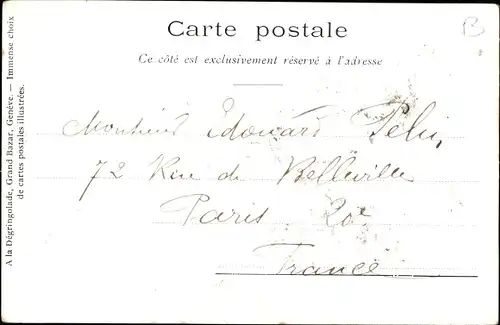 Carte postale
Ce côté est exclusivement réservé à l'adresse
B
Monsieur Edouard
72 Rue de Belleville
Paris 20e
France
A la Dégringolade, Grand Bazar, Genève. — Immense choix
de cartes postales illustrées.